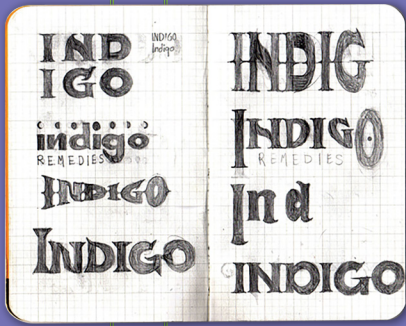 IND
IGO
INDIGO
Indigo
indigo
REMEDIES
INDIGO
INDIGO
INDIG
INDIGO
REMEDIES
Ind
INDIGO